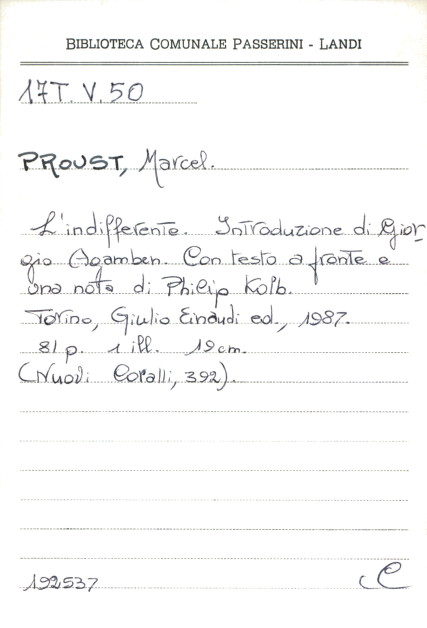 BIBLIOTECA COMUNALE PASSERINI - LANDI
17T. V. 50
PROUST, Marcel.
L'indifferente. Introduzione di Gior-
gio Agamben. Con testo a fronte e
una nota di Philip Kolb.
Torino, Giulio Einaudi ed., 1987.
81 p. 1 ill. 19 cm.
(Nuovi Coralli, 392).
192537